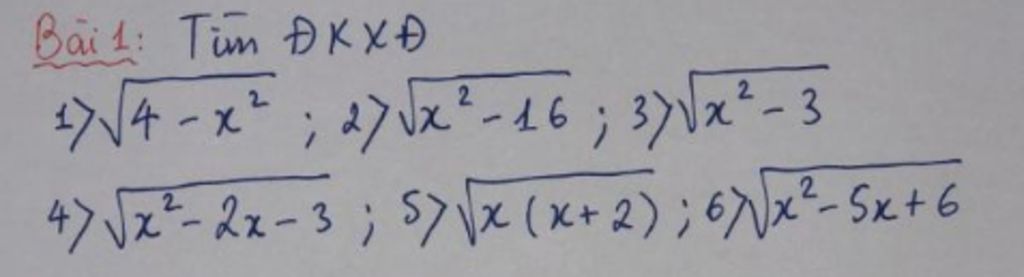 Bài 1: Tìm ĐKXĐ
1> √(4 - x²) ; 2> √(x² - 16) ; 3> √(x² - 3)
4> √(x² - 2x - 3) ; 5> √(x(x + 2)) ; 6> √(x² - 5x + 6)